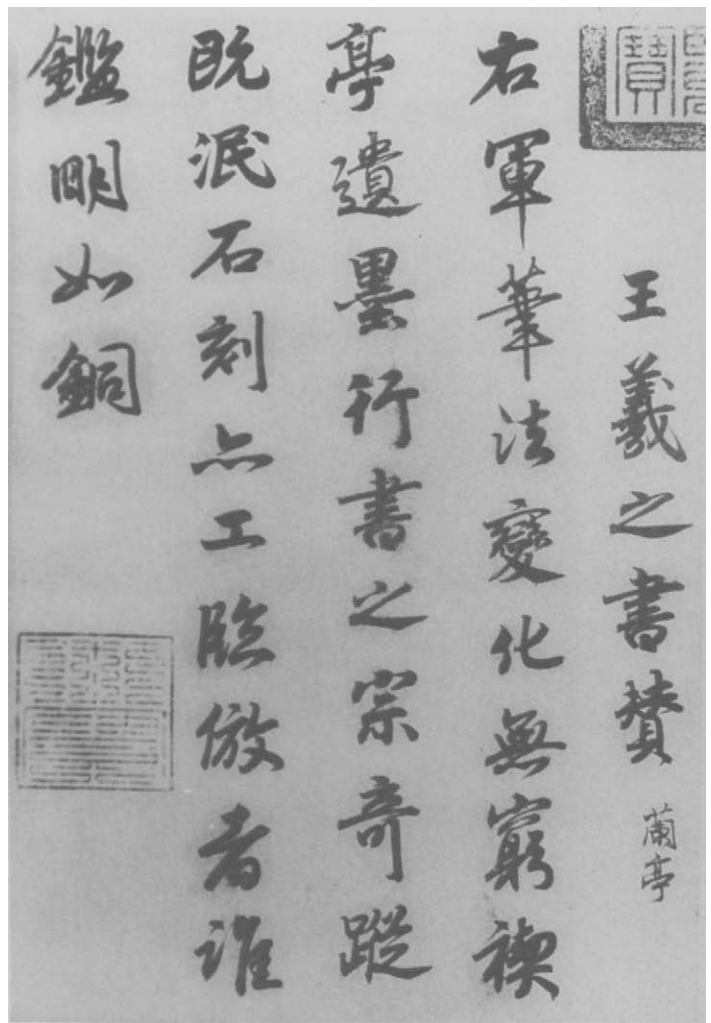 王羲之書贊 蘭亭
右軍筆法變化無窮禊
亭遺墨行書之宗奇蹤
既泯石刻亦工臨倣者誰
鑑明如銅